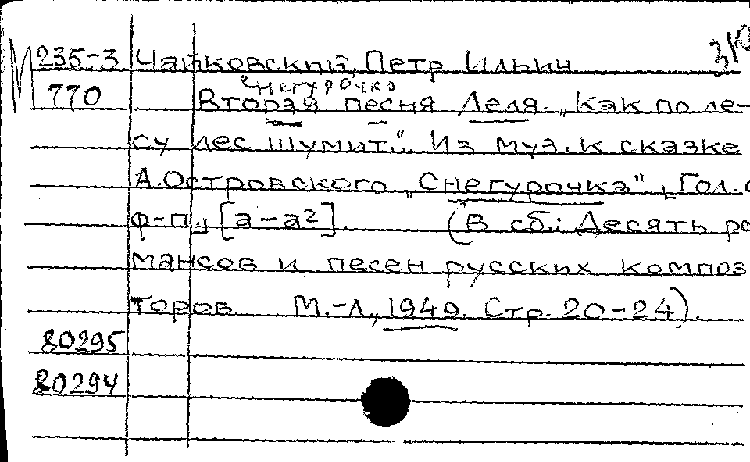 М 235-3 Чайковский, Петр Ильич
Снегурочка
770 Вторая песня Леля. „Как по ле-
су лес шумит.“ Из муз. к сказке
А. Островского „Снегурочка“, Гол. с
ф-п., [a-a²]. (В сб.: Десять ро
мансов и песен русских композ
торов М.-Л., 1949. Стр. 20-24).
80295
80294